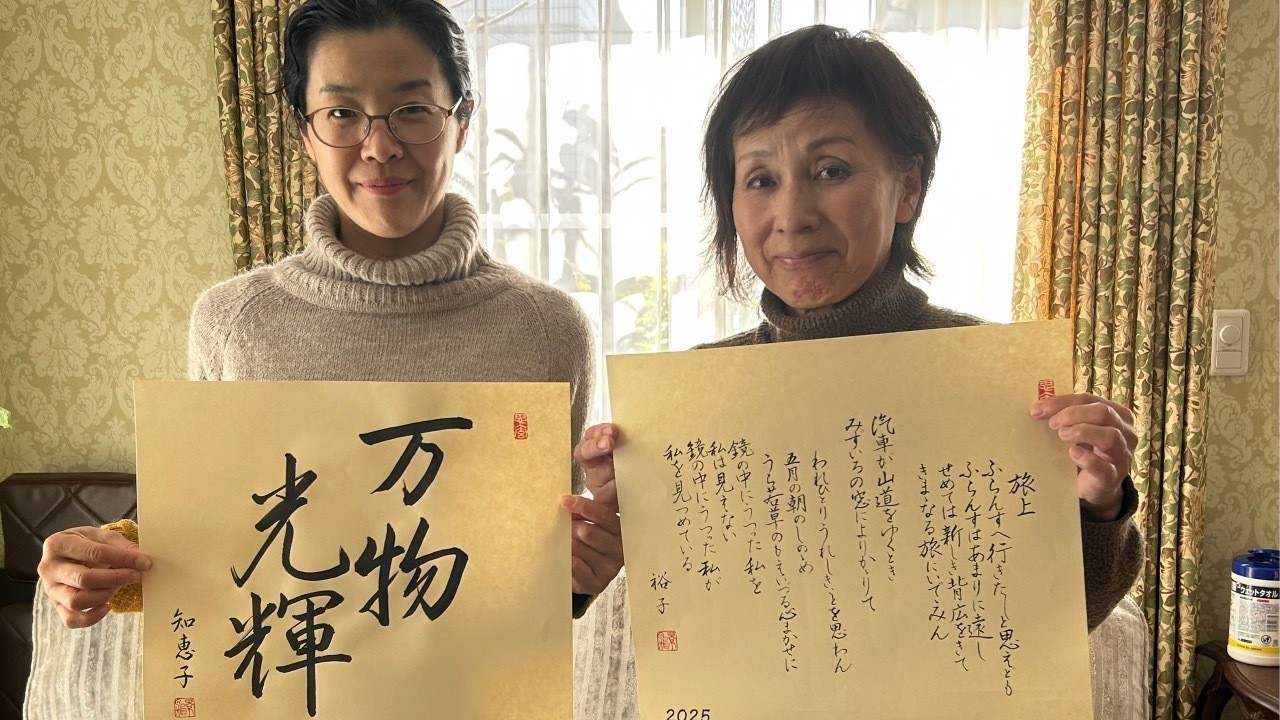 万物
光輝
知恵子
旅上
ふらんすへ行きたしと思えども
ふらんすはあまりに遠し
せめては新しき背広をきて
きまゝなる旅にいでてみん
汽車が山道をゆくとき
みずいろの窓によりかゝりて
われひとりうれしきことを思わん
五月の朝のしのゝめ
うら若草のもえいづる心まかせに
鏡の中にうつった私を
私は見えない
鏡の中にうつった私が
私を見つめている
裕子
2025
ウェットタオル